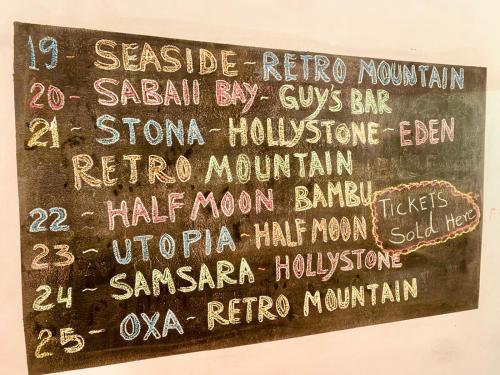 19 - SEASIDE - RETRO MOUNTAIN
20 - SABAII BAY - GUY'S BAR
21 - STONA - HOLLYSTONE - EDEN
RETRO MOUNTAIN
22 - HALF MOON BAMBU
23 - UTOPIA - HALF MOON
24 - SAMSARA - HOLLYSTONE
25 - OXA - RETRO MOUNTAIN
TICKETS
Sold Here